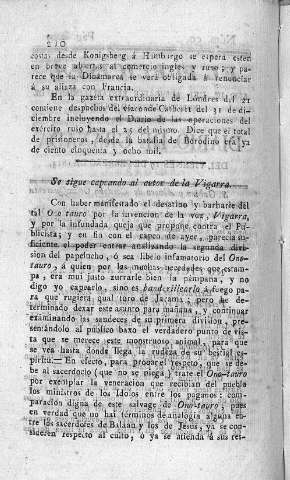 210
costas desde Konigsberg á Hamburgo se espera esten
en breve abiertas al comercio ingles y ruso, y pa-
rece que la Dinamarca se verá obligada á renunciar
á su alianza con Francia.
En la gazeta extraordinaria de Londres del 21
contiene despachos del vizconde Cathcart del 31 de di-
ciembre incluyendo el Diario de las operaciones del
exército ruso hasta el 25 del mismo. Dice que el total
de prisioneros, desde la batalla de Borodino era ya
de ciento cinquenta y ocho mil.
Se sigue capeando al autor de la Vigarra.
Con haber manifestado el desatino y barbarie del
tal Ono-tauro por la invencion de la voz, Vigarra,
y por la infundada queja que propone contra el Pu-
blicista; y en fin con el capeo de ayer, parecia su-
ficiente el poder entrar analizando la segunda divi-
sion del papelucho, ó sea libelo infamatorio del Ono-
tauro, á quien por las muchas necedades que estam-
pa, era muy justo zurrarle bien la pámpana, y no
digo yo capearlo, sino es banderillearlo á fuego pa-
ra que rugiera qual toro de Jarama; pero he de-
terminado dexar este asunto para mañana, y continuar
examinando las sandeces de su primera division, pre-
sentándolo al público baxo el verdadero punto de vis-
ta que se merece este monstruoso animal, para que
se vea hasta donde llega la rudeza de su bestial es-
píritu. En efecto, para probar el respeto, que se de-
be al sacerdocio (que no se niega) trae el Ono-tauro
por exemplar la veneracion que recibian del pueblo
los ministros de los Idolos entre los paganos: com-
paracion digna de este salvage de Ono-tauro; pues
en verdad que no hai términos de analogía alguna en-
tre los sacerdotes de Balaan y los de Jesus, ya se con-
sideren respecto al culto, ó ya se atienda á sus res-